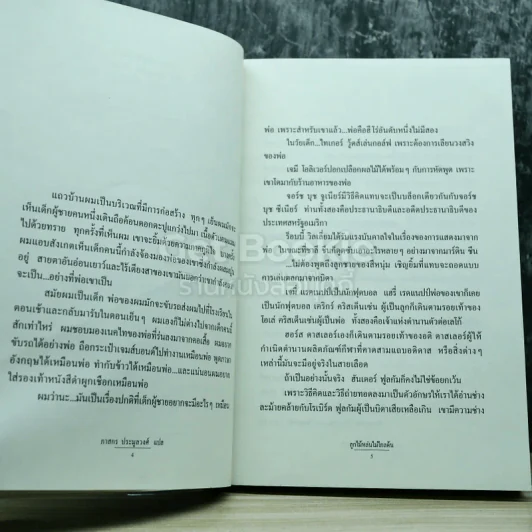 แถวบ้านผมเป็นบริเวณที่มีการก่อสร้าง ทุกๆ เย็นผมมักจะ
เห็นเด็กผู้ชายคนหนึ่งเดินถือค้อนตอกตะปูแกว่งไปมา
ไปด้วยทราย ทุกครั้งที่เห็นผม เขาจะยิ้มด้วยความ
ผมแอบสังเกตเห็นเด็กคนนี้กำลังจ้องมองพ่อของเขาซึ่งกำลัง
อยู่ สายตาอันอ่อนเยาว์และไร้เดียงสาของเขามัน
จะเป็น...อย่างที่พ่อเขาเป็น
สมัยผมเป็นเด็ก พ่อของผมมักจะขับรถส่งผมไปที่โรงเรียนใน
ตอนเช้าและกลับมารับในตอนเย็นๆ ผมเองก็ไม่ต่างไปจากเด็กคนนี้
สักเท่าไหร่ ผมชอบมองเนคไทของพ่อที่
ขับรถได้อย่างพ่อ ถือกระเป๋าเจมส์บอนด์ไปทำงานเหมือนพ่อ พูดภาษา
อังกฤษได้เหมือนพ่อ ทำกับข้าวได้เหมือนพ่อ...และแน่นอนผมอยาก
ใส่รองเท้าหนังสีดำผูกเชือกเหมือนพ่อ
ผมว่านะ...มันเป็นเรื่องปกติที่เด็กผู้ชายอยากจะมีอะไรๆ เหมือน
ภาสกร ประมูลวงศ์ แปล
4
พ่อ เพราะสำหรับเขาแล้ว...พ่อคือฮีโร่อันดับหนึ่งไม่มีสอง
ในวัยเด็ก...ไทเกอร์ วู้ดส์เล่นกอล์ฟ เพราะต้องการเลียนวงสวิง
ของพ่อ
เจมี่ โอลิเวอร์ปอกเปลือกผลไม้ได้พร้อมๆ กับการหัดพูด เพราะ
เขาโตมากับร้านอาหารของพ่อ
จอร์ช บุช จูเนียร์มีวิธีคิดแทบจะเป็นบล็อกเดียวกันกับจอร์ช
บุช ซีเนียร์ ท่านทั้งสองคือประธานาธิบดีและอดีตประธานาธิบดีของ
ประเทศสหรัฐอเมริกา
ร็อบบี้ วิลเลี่ยมได้รับแรงบันดาลใจในเรื่องของการแสดงมาจาก
พ่อ ไมเคนะที่ราซี ชีนก็พูดจาและทำอะไรหลายๆ อย่างมาจากมาร์ติน ชีน
...ไม่ต้องพูดถึงลูกชายของสี่หนุ่ม เชิญยิ้มที่แทบจะถอดแบบ
การเล่นตลกมาจากบิดา
แฟรงค์ แรดแนปป์เป็นนักฟุตบอล แฮรี่ เรดแนปป์พ่อของเขาก็เคย
เป็นนักฟุตบอล ผู้เป็นลูกก็เดินตามรอยเท้าของ
โอเล่ คริสเต็นเซ่นผู้เป็นพ่อ ทั้งสองคือเจ้าแห่งตำนานตัวต่อเลโก้
ฮอร์ส ดาสเลอร์เดินตามรอยเท้าของ อดิ ดาสเลอร์ผู้ให้
กำเนิดตำนานผลิตภัณฑ์กีฬาที่คาดสามแถบอดิดาส หรือสิ่งต่างๆ
เหล่านี้มันมีอยู่จริงในสายเลือด
ถ้าเป็นอย่างนั้นจริง ฮันเตอร์ ฟูลกัมก็คงไม่ใช่ข้อยกเว้น
เพราะวิธีคิดและวิธีถ่ายทอดลงมาเป็นตัวอักษรให้เราได้อ่านช่าง
ละม้ายคล้ายกับโรเบิร์ต ฟูลกัมผู้เป็นบิดาเสียเหลือเกิน เขามีความช่าง
ลูกไม้หล่นไม่ไกลต้น
5